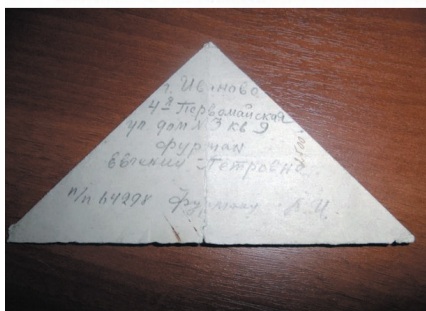 г. Иваново
4я Первомайская
ул дом №3 кв 9
Фурман
Евгении Петровне
п/п 64298 Фурман